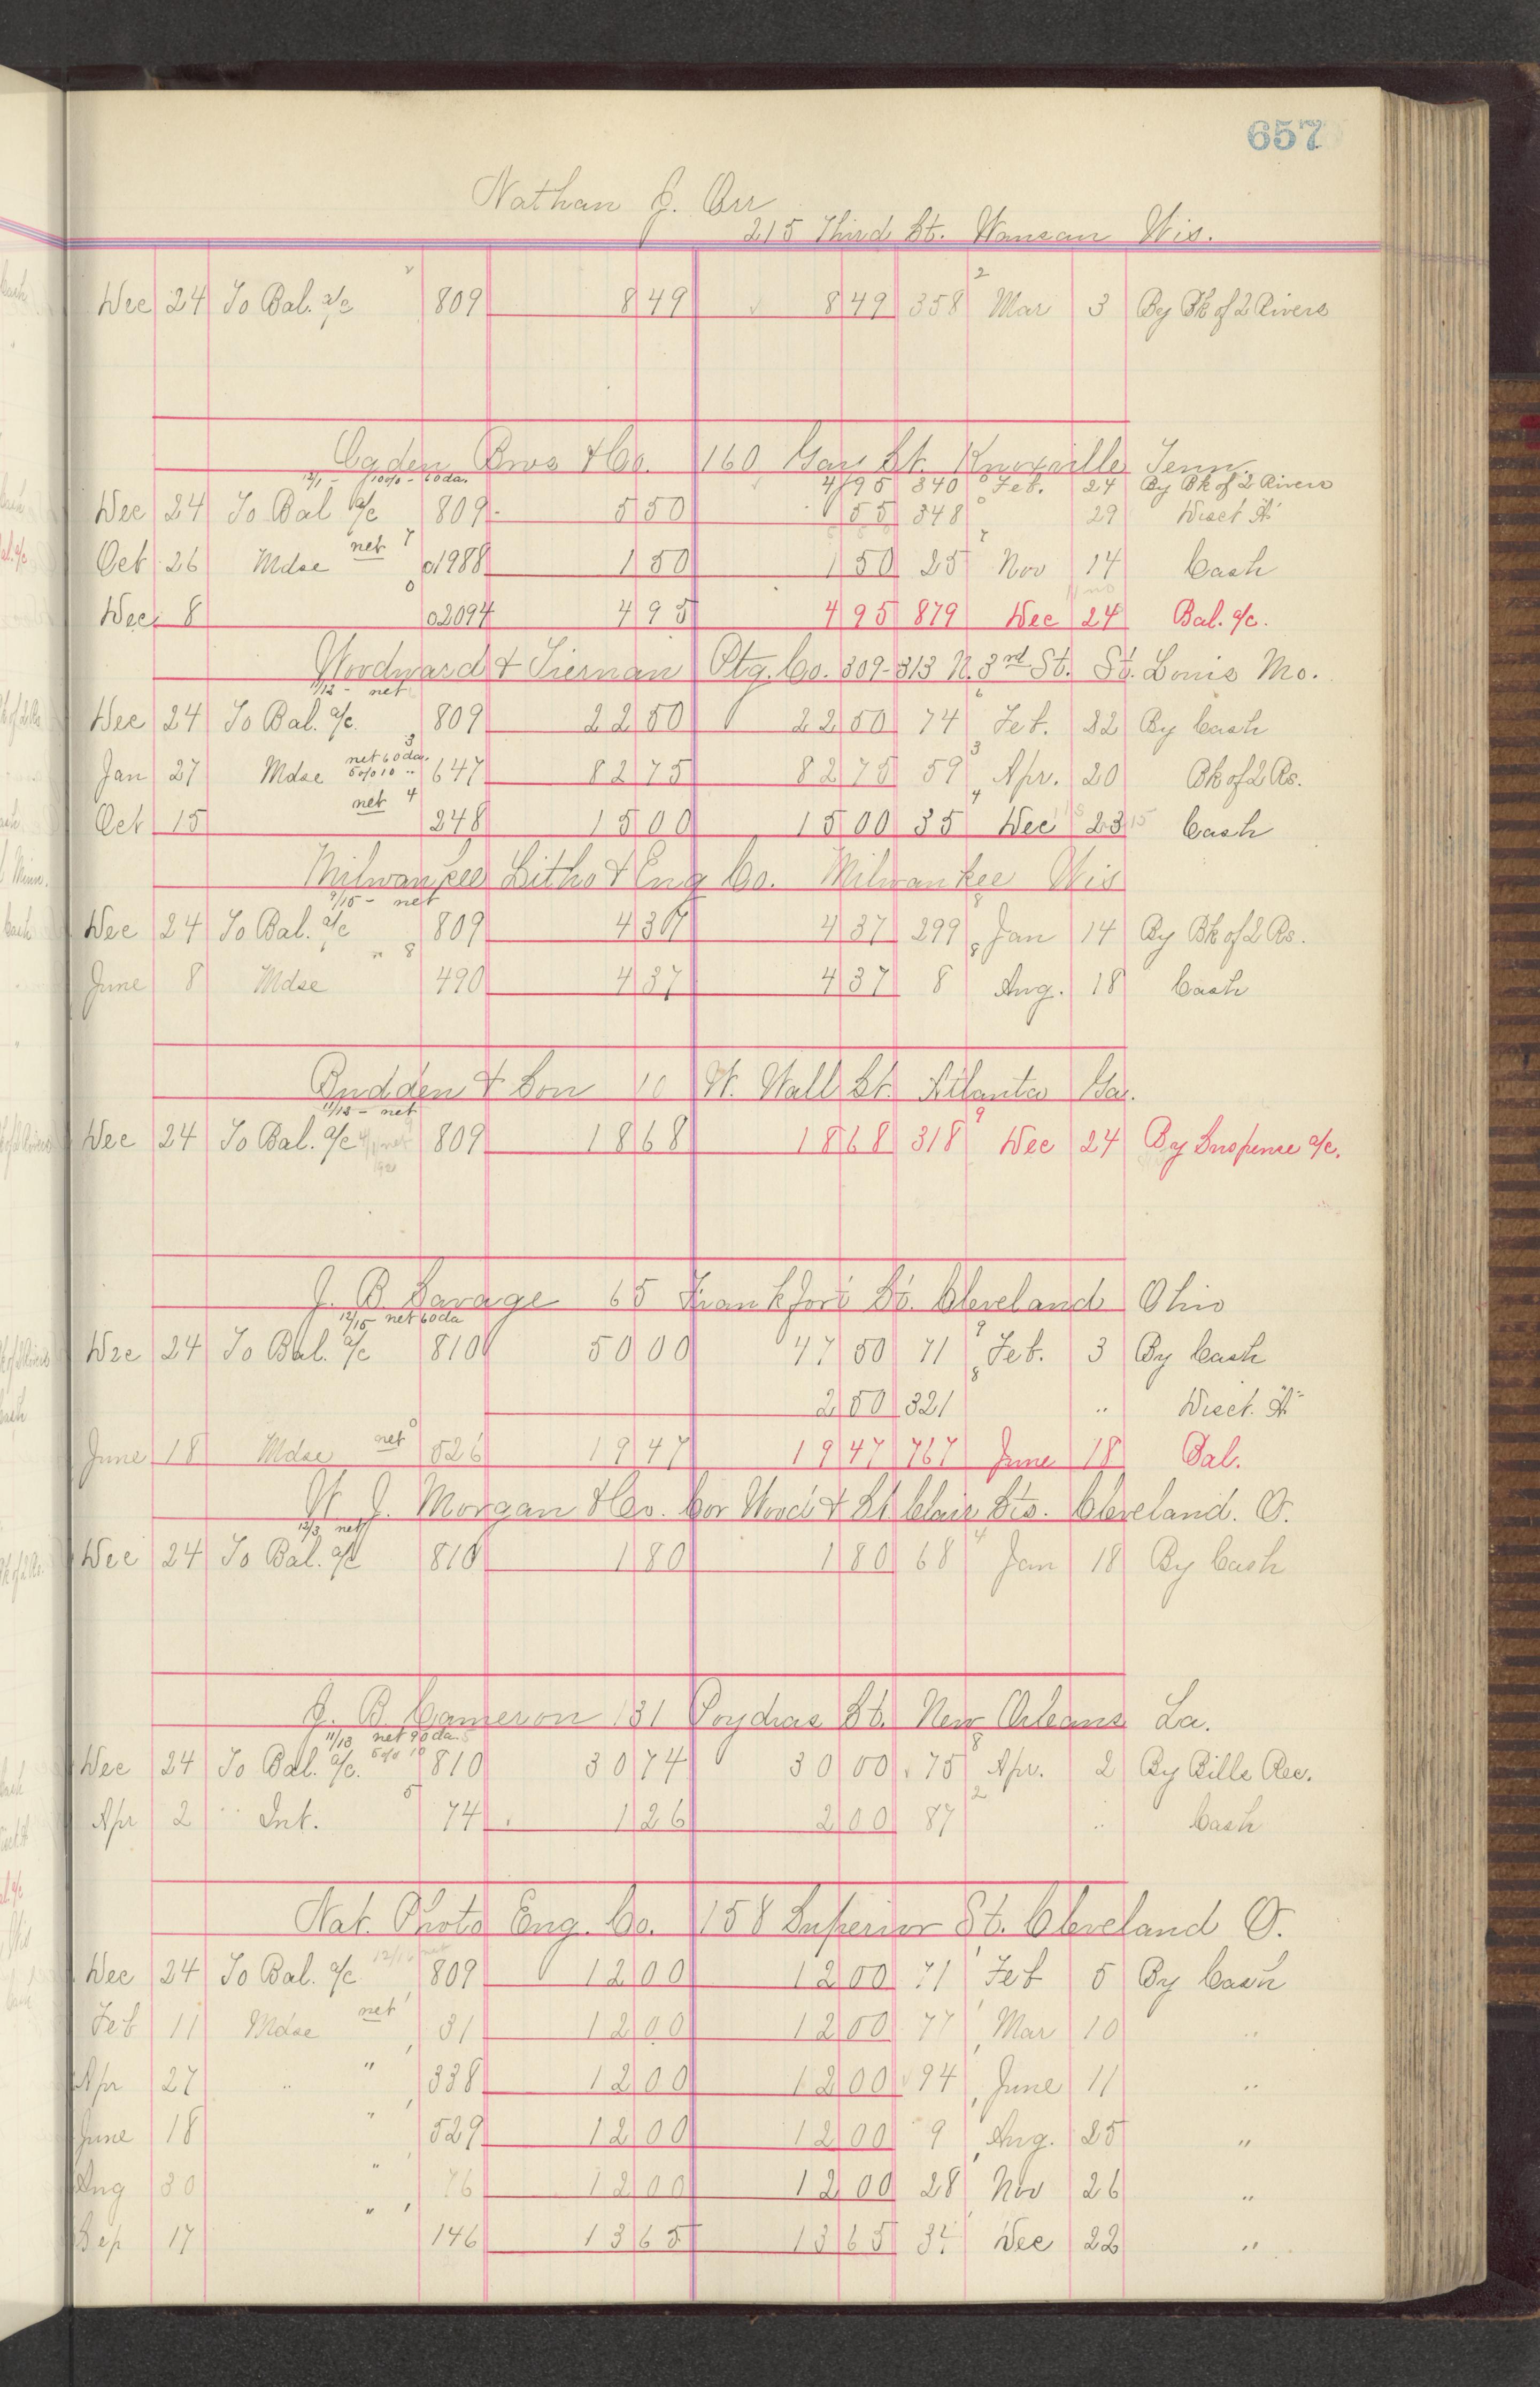 657
Nathan J. Orr
215 Third St. Wausau Wis.
Dec 24 To Bal. a/c 809 8 49 8 49 358 Mar 3 By Bk of 2 Rivers
Ogden Bros & Co. 160 Gay St. Knoxville Tenn.
12/1 - 10% - 60 da. 4 95 340 Feb. 24 By Bk of 2 Rivers
Dec 24 To Bal a/c 809 5 50 55 348 29 Disct "A"
Oct 26 Mdse net 1988 1 50 1 50 25 Nov 14 Cash
Dec 8 2094 4 95 4 95 879 Dec 24 Bal. a/c.
Woodward & Tiernan Ptg. Co. 309-313 N. 3rd St. St. Louis Mo.
11/12 - net
Dec 24 To Bal. a/c. 809 22 50 22 50 74 Feb. 22 By Cash
Jan 27 Mdse net 60 da. 5% 10 " 647 82 75 82 75 59 Apr. 20 Bk of 2 Rs.
Oct 15 net 248 15 00 15 00 35 Dec 23 Cash
Milwaukee Litho & Eng Co. Milwaukee Wis
9/15 - net
Dec 24 To Bal. a/c 809 4 37 4 37 299 Jan 14 By Bk of 2 Rs.
June 8 Mdse " 490 4 37 4 37 8 Aug. 18 Cash
Budden & Son 10 W. Wall St. Atlanta Ga.
11/13 - net
Dec 24 To Bal. a/c 809 18 68 18 68 318 Dec 24 By Suspense a/c.
J. B. Savage 65 Frankfort St. Cleveland Ohio
12/15 net 60 da
Dec 24 To Bal. a/c 810 50 00 47 50 71 Feb. 3 By Cash
2 50 321 " Disct. "A"
June 18 Mdse net 526 19 47 19 47 767 June 18 Bal.
W. J. Morgan & Co. Cor Wood & St Clair Sts. Cleveland. O.
12/3 net
Dec 24 To Bal. a/c 810 1 80 1 80 68 Jan 18 By Cash
J. B. Cameron 131 Poydras St. New Orleans La.
11/13 net 90 da.
Dec 24 To Bal. a/c. 5% 10 810 30 74 30 00 75 Apr. 2 By Bills Rec.
Apr 2 " Int. 74 1 26 2 00 87 " Cash
Nat. Photo Eng. Co. 158 Superior St. Cleveland O.
Dec 24 To Bal. a/c 809 12 00 12 00 71 Feb 5 By Cash
Feb 11 Mdse net 31 12 00 12 00 77 Mar 10 "
Apr 27 " " 338 12 00 12 00 94 June 11 "
June 18 " 529 12 00 12 00 9 Aug. 25 "
Aug 30 " 76 12 00 12 00 28 Nov 26 "
Sep 17 " 146 13 65 13 65 Dec 22 "